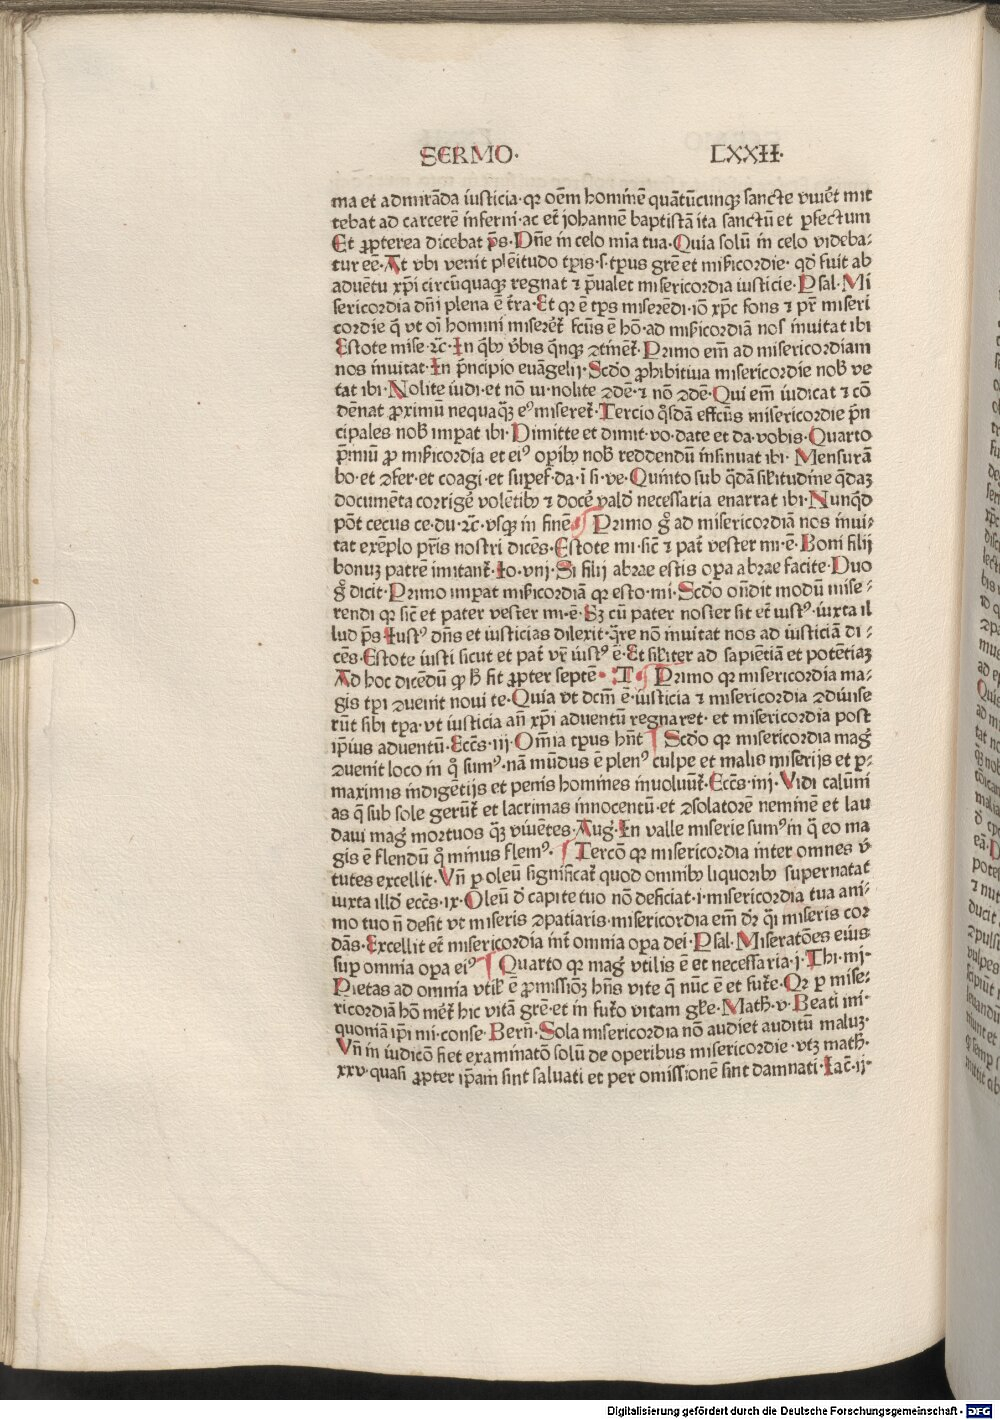 SERMO· LXXII·
ma et admirāda iusticia· qꝛ oēm hominē quātūcunqꝫ sancte viuēt mit
tebat ad carcerē inferni· ac et̄ johannē baptistā ita sanctū et ꝑfectum
Et ꝓpterea dicebat p̄s· Dn̄e in celo mīa tua· Quia solū in celo videba⸗
tur eē· At vbi venit plēitudo tp̄is· s· tp̄us grē et miẜicordie· qd̄ fuit ab
aduētu xp̄i circūquaqꝫ regnat ⁊ p̄ualet misericordia iusticie· Psal· Mi
sericordia dn̄i plena ē t̄ra· Et qꝛ ē tp̄s miserēdi· iō xp̄c fons ⁊ pr̄ miseri
cordie q̄ vt oī homini miserēt̄ fc̄us ē hō· ad miẜicordiā nos inuitat ibi
Estote mise· ⁊c̄· In qͥbꝰ v̄bis qͥnqꝫ ꝯtinēt̄· Primo em̄ ad misericordiam
nos inuitat· In p̄ncipio euāgelij· Scd̄o ꝓhibitiua misericordie nob̄ ve
tat ibi· Nolite iudi· et nō iu· nolite ꝯdē· ⁊ nō ꝯdē· Qui em̄ iudicat ⁊ cō
dēnat ꝓximū nequaqꝫ̄ eꝰ miseret̄· Tercio qͦsdā effc̄us misericordie p̄n
cipales nob̄ imꝑat ibi· Dimitte et dimit· vo· date et da· vobis· Quarto
p̄miū ꝓ miẜicordia et eiꝰ oꝑibꝰ nob̄ reddendū insinuat ibi· Mensurā
bo· et ꝯfer· et coagi· et suꝑef· da· ī si· ve· Quinto sub qͣdā siłitudine qͣdaꝫ
documēta corrigē volētibꝰ ⁊ docē vald̄ necessaria enarrat ibi· Nunqͥd
pōt cecus ce· du· ⁊c̄· vsqꝫ in finē ¶ Primo gͦ ad misericordiā nos inui⸗
tat exēplo pr̄is nostri dicēs· Estote mi· sic̄ ⁊ pat̄ vester mi· ē· Boni filij
bonuꝫ patrē imitant̄· Io· vnj· Si filij abrae estis oꝑa abrae facite· Duo
gͦ dicit· Primo imꝑat miẜicordiā qꝛ esto· mi· Scd̄o on̄dit modū mise⸗
rendi qꝛ sic̄ et pater vester mi· ē· Sꝫ cū pater noster sit et̄ iustꝰ· iuxta il
lud p̄s Iustꝰ dn̄s et iusticias dilexit· qͣre nō inuitat nos ad iusticiā di⸗
cēs· Estote iusti sicut et pat̄ vr̄ iustꝰ ē· Et siłiter ad sapientiā et potētiaꝫ
Ad hoc dicēdū ꝙ h̄ fit ꝓpter septē· :T· ¶ Primo qꝛ misericordia ma⸗
gis tp̄i ꝯuenit noui te· Quia vt dcm̄ ē· iusticia ⁊ misericordia ꝯdiuise
rūt sibi tp̄a· vt iusticia an̄ xp̄i aduentū regnaret· et misericordia post
ip̄ius aduentū· Ecc̄s· iij· Om̄ia tp̄us hn̄t ¶ Scd̄o qꝛ misericordia maḡ
ꝯuenit loco in qͦ sumꝰ· nā mūdus ē plenꝰ culpe et malis miserijs et ꝑ⸗
maximis indigētijs et penis hominēs inuoluūt̄· Ecc̄s· iiij· Vidi calūni
as q̄ sub sole gerūt̄ et lacrimas innocentū· et ꝯsolatorē neminē et lau
daui maḡ mortuos qͣꝫ viuētes· Auḡ· In valle miserie sumꝰ in qͣ eo ma
gis ē flendū qͦ minus flemꝰ· ¶ Tercō qꝛ misericordia inter omnes v̄
tutes excellit· Vn̄ ꝑ oleū significat̄ quod omnibꝰ liquoribꝰ supernatat
iuxta illd̄ ecc̄s· ix· Oleū d̄ capite tuo nō deficiat· i· misericordia tua ani⸗
mo tuo n̄ desit vt miseris ꝯpatiaris· misericordia em̄ dr̄ qͣi miseris cor
dās· Excellit et̄ misericordia int̄ omnia oꝑa dei· Psal· Miseratōes eius
suꝑ omnia oꝑa eiꝰ ¶ Quarto qꝛ maḡ vtilis ē et necessaria· j· Thi· iiij·
Pietas ad omnia vtił ē ꝓmissiōꝫ hn̄s vite q̄ nūc ē et fut̄e· Qꝛ ꝑ mise⸗
ricordiā hō mēt̄ hic vitā grē· et in fut̄o vitam głe· Matħ· v· Beati mi·
quoniā ip̄i mi· conse· Bern̄· Sola misericordia nō audiet auditū maluꝫ·
Vn̄ in iudicō fiet examinatō solū de operibus misericordie· vtꝫ matħ·
xxv· quasi ꝓpter ip̄am sint saluati et per omissionē sint damnati· Iac̄· ij·
Digitalisierung gefördert durch die Deutsche Forschungsgemeinschaft - DFG